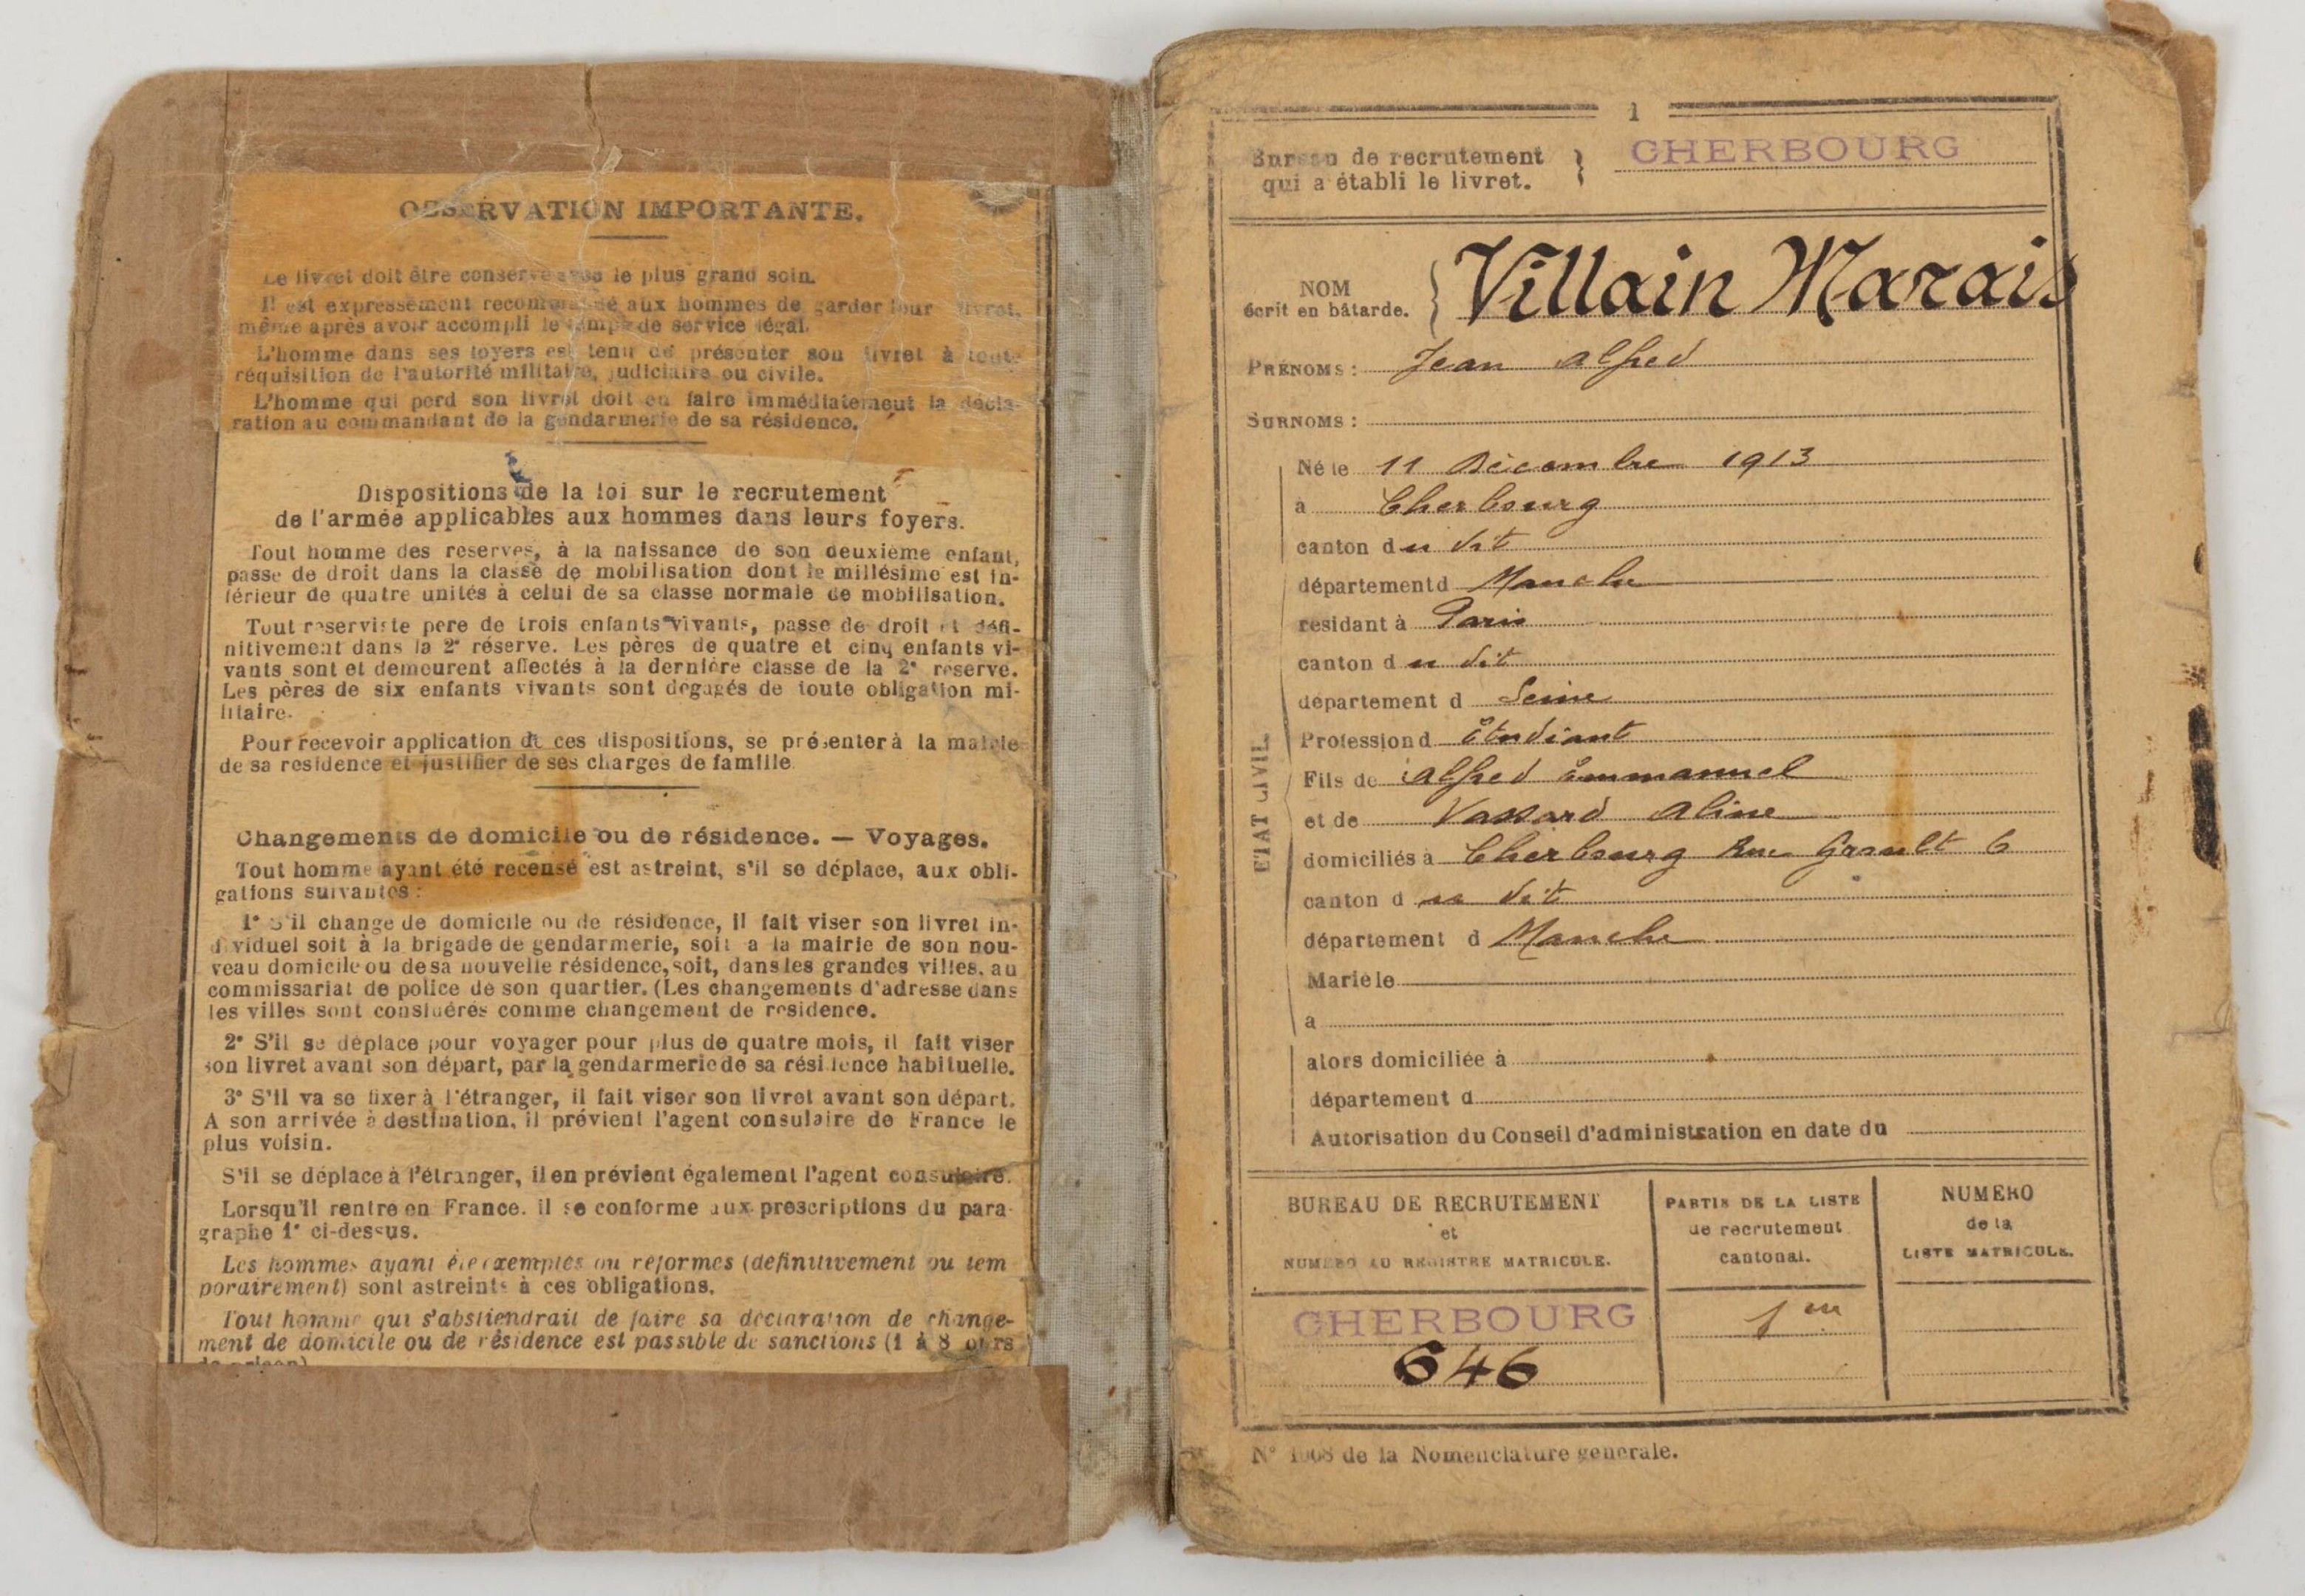 OBSERVATION IMPORTANTE.
Le livret doit être conservé avec le plus grand soin.
Il est expressément recommandé aux hommes de garder leur livret,
même après avoir accompli le temps de service légal.
L'homme dans ses foyers est tenu de présenter son livret à toute
réquisition de l'autorité militaire, judiciaire ou civile.
L'homme qui perd son livret doit en faire immédiatement la décla-
ration au commandant de la gendarmerie de sa résidence.
Dispositions de la loi sur le recrutement
de l'armée applicables aux hommes dans leurs foyers.
Tout homme des reserves, à la naissance de son deuxième enfant,
passe de droit dans la classe de mobilisation dont le millésime est in-
férieur de quatre unités à celui de sa classe normale de mobilisation.
Tout reserviste pere de trois enfants vivants, passe de droit et défi-
nitivement dans la 2e réserve. Les pères de quatre et cinq enfants vi-
vants sont et demeurent affectés à la dernière classe de la 2e reserve.
Les pères de six enfants vivants sont dégagés de toute obligation mi-
litaire.
Pour recevoir application de ces dispositions, se présenter à la mairie
de sa residence et justifier de ses charges de famille
Changements de domicile ou de résidence. — Voyages.
Tout homme ayant été recensé est astreint, s'il se déplace, aux obli-
gations suivantes :
1° S'il change de domicile ou de résidence, il fait viser son livret in-
dividuel soit à la brigade de gendarmerie, soit a la mairie de son nou-
veau domicile ou de sa nouvelle résidence, soit, dans les grandes villes, au
commissariat de police de son quartier. (Les changements d'adresse dans
les villes sont considérés comme changement de résidence.
2° S'il se déplace pour voyager pour plus de quatre mois, il fait viser
son livret avant son départ, par la gendarmerie de sa résidence habituelle.
3° S'il va se fixer à l'étranger, il fait viser son livret avant son départ.
A son arrivée à destination, il prévient l'agent consulaire de France le
plus voisin.
S'il se déplace à l'étranger, il en prévient également l'agent consulaire.
Lorsqu'il rentre en France, il se conforme aux prescriptions du para-
graphe 1° ci-dessus.
Les hommes ayant été exemptés ou réformes (définitivement ou tem
porairement) sont astreints à ces obligations.
Tout homme qui s'abstiendrait de faire sa déclaration de change-
ment de domicile ou de résidence est passible de sanctions (1 à 8 jours
de prison)
1
Bureau de recrutement
qui a établi le livret. } CHERBOURG
NOM
écrit en bâtarde. { Villain Marais
PRÉNOMS : Jean Alfred
SURNOMS :
ETAT CIVIL.
Né le 11 Décembre 1913
à Cherbourg
canton du dit
département d Manche
residant à Paris
canton du dit
departement d Seine
Profession d Étudiant
Fils de Alfred Emmanuel
et de Vassard Aline
domiciliés à Cherbourg Rue Grault 6
canton du dit
département d Manche
Marié le
a
alors domiciliée à
département d
Autorisation du Conseil d'administration en date du
BUREAU DE RECRUTEMENT
et
NUMÉRO AU REGISTRE MATRICULE.
PARTIE DE LA LISTE
de recrutement
cantonal.
NUMERO
de la
LISTE MATRICULE.
CHERBOURG
646
1 re
N° 1908 de la Nomenclature generale.